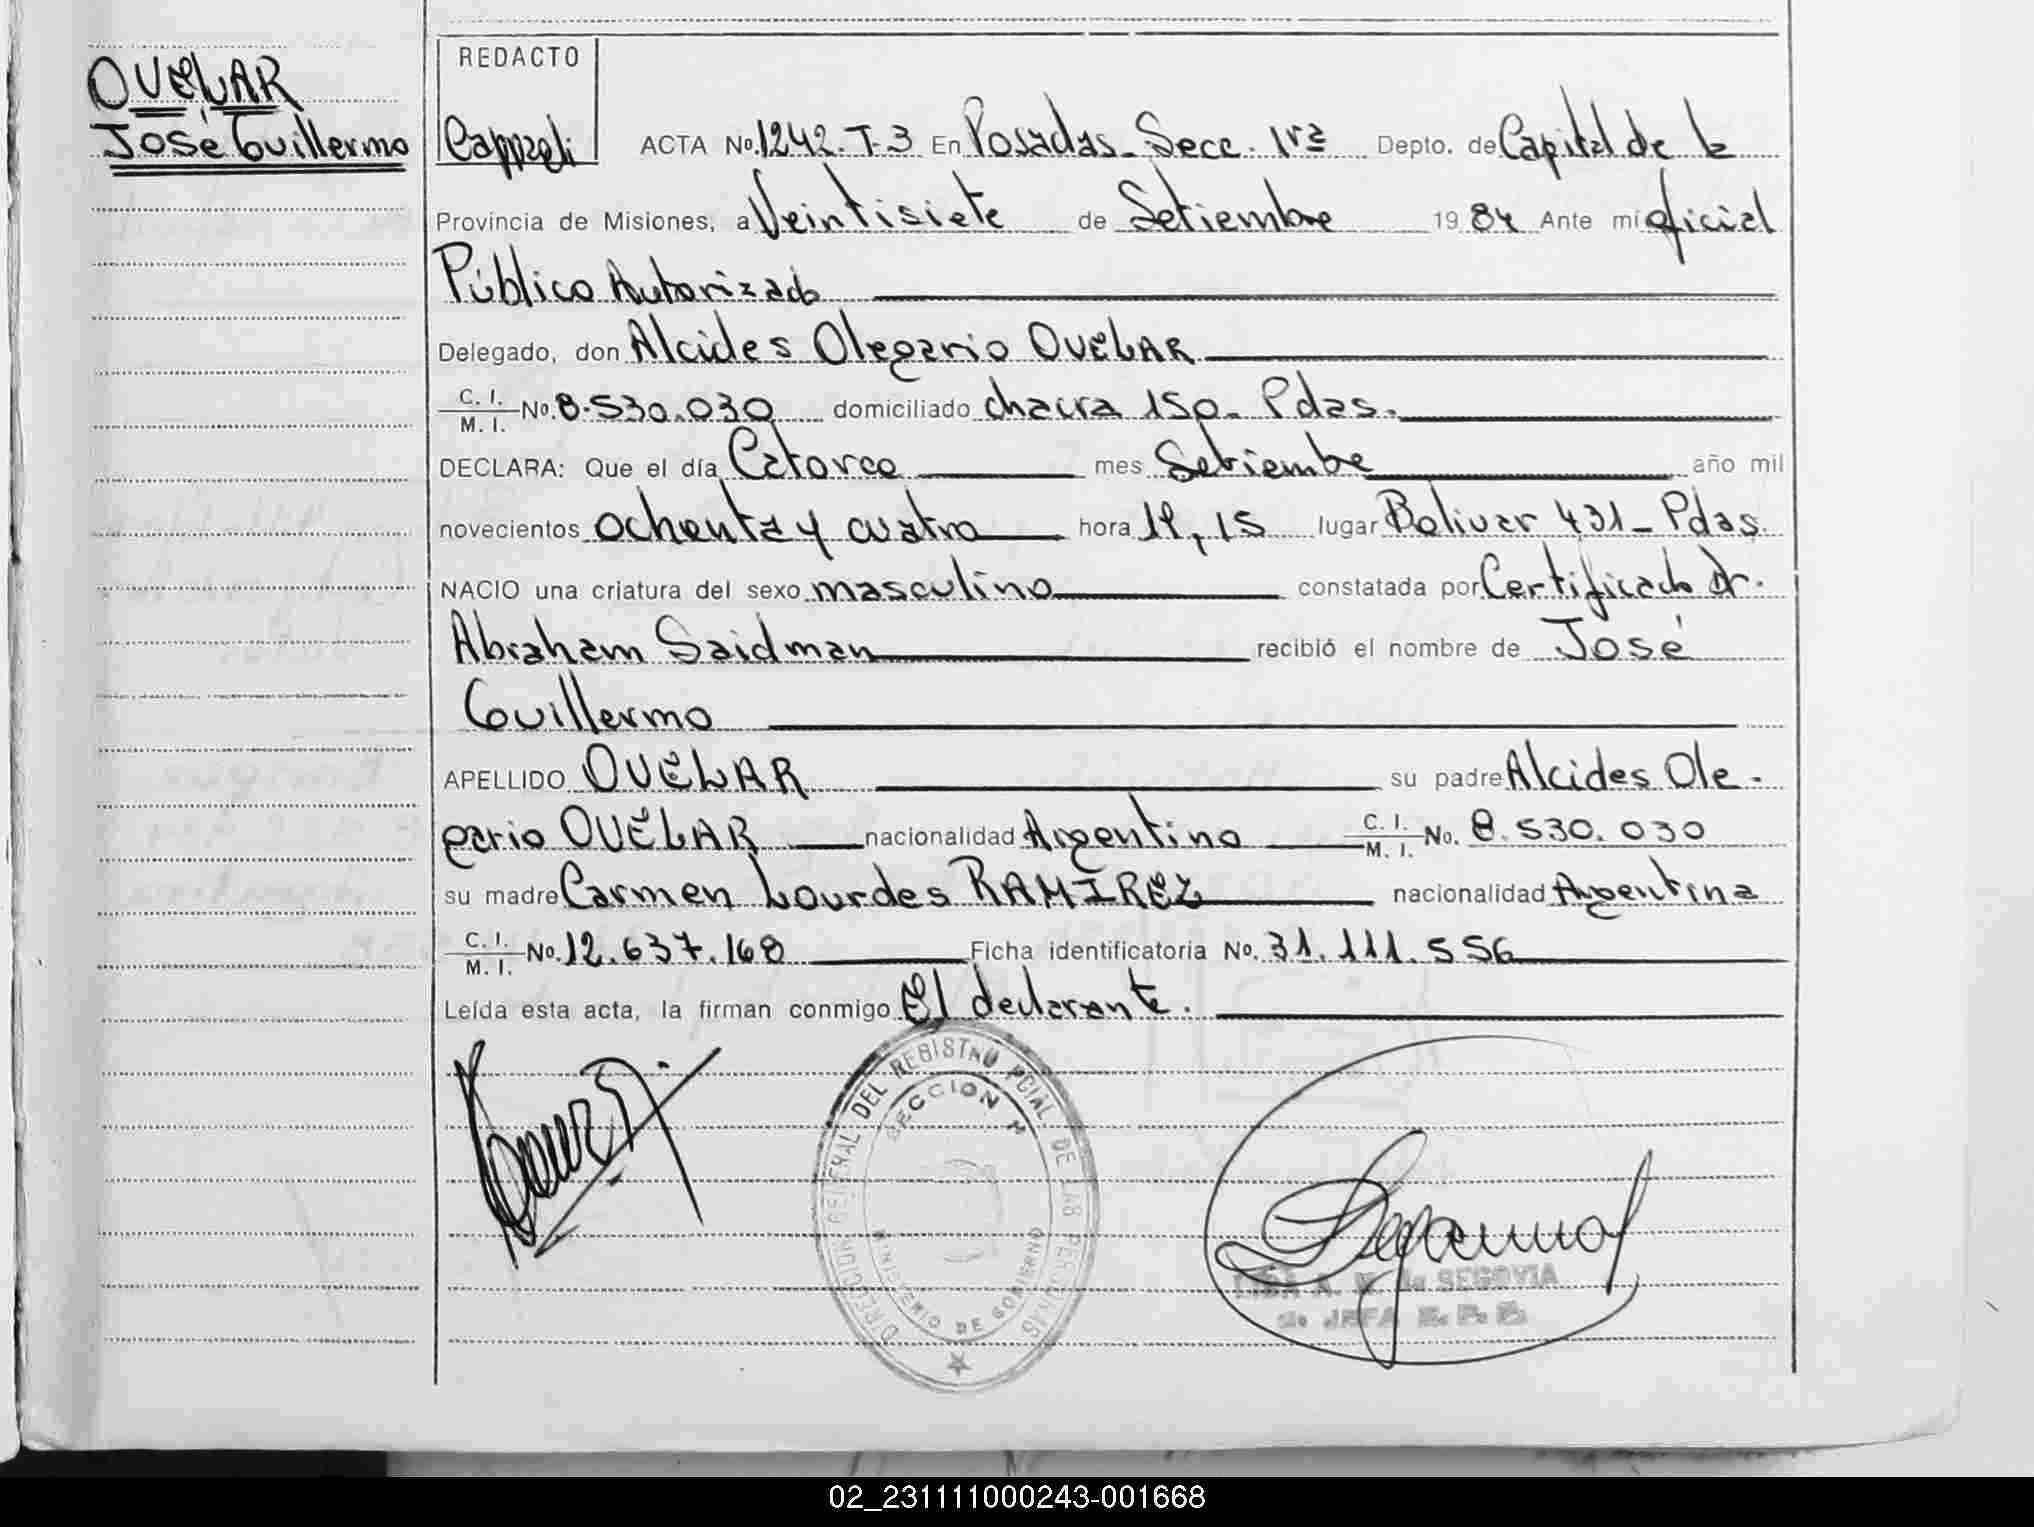 OVELAR
José Guillermo
REDACTO
ACTA No. 1242. T-3 En Posadas. Secc. 1ra Depto. de Capital de la
Provincia de Misiones, a Veintisiete de Setiembre 1984 Ante mi oficial
Público Autorizado
Delegado, don Alcides Olegario OVELAR
C. I.
M. I. No. 8.530.030 domiciliado chacra 150. Pdas.
DECLARA: Que el día Catorce mes Setiembre año mil
novecientos ochenta y cuatro hora 11,15 lugar Bolivar 431 - Pdas.
NACIO una criatura del sexo masculino constatada por Certificado Dr.
Abraham Saidman recibió el nombre de José
Guillermo
APELLIDO OVELAR su padre Alcides Ole-
gario OVELAR nacionalidad Argentino C. I. M. I. No. 8.530.030
su madre Carmen Lourdes RAMIREZ nacionalidad Argentina
C. I.
M. I. No. 12.637.168 Ficha identificatoria No. 31.111.556
Leída esta acta, la firman conmigo El declarante.
DIRECCION GENERAL DEL REGISTRO PCIAL. DE LAS PERSONAS
SECCION
MINISTERIO DE GOBIERNO
de SEGOVIA
JEFA
02_231111000243-001668